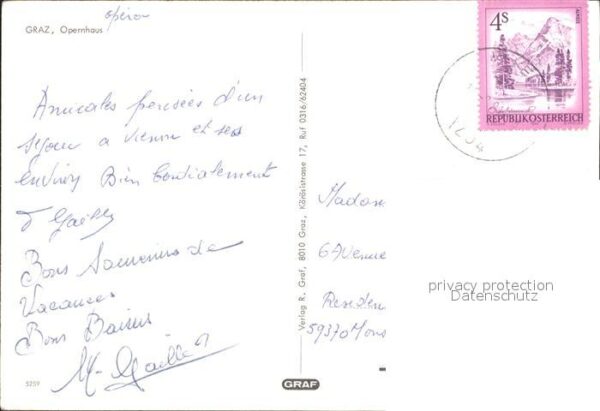 opéra
GRAZ, Opernhaus
Amicales pensées d'un
séjour a Vienne et ses
environs Bien Cordialement
Bons Souvenirs de
Vacances
Bons Baisers
M.
5259
Verlag R. Graf, 8010 Graz, Körösistrasse 17, Ruf 0316/62404
GRAF
4S
ALMSEE
REPUBLIK ÖSTERREICH
Madam
6 Avenue
Residen
59370 Mons
privacy protection
Datenschutz